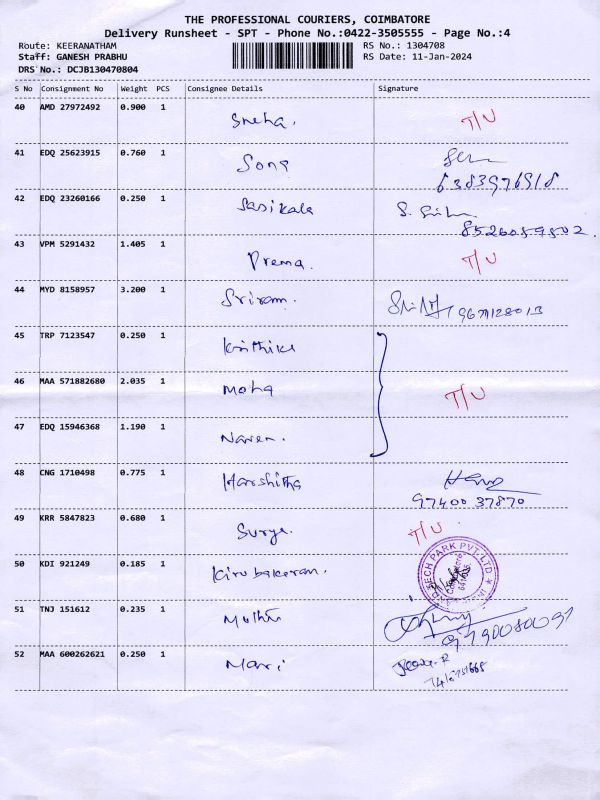 THE PROFESSIONAL COURIERS, COIMBATORE
Delivery Runsheet - SPT - Phone No.:0422-3505555 - Page No.:4
Route: KEERANATHAM RS No.: 1304708
Staff: GANESH PRABHU RS Date: 11-Jan-2024
DRS No.: DCJB130470804
S No Consignment No Weight PCS Consignee Details Signature
40 AMD 27972492 0.900 1 Sneha. T/U
41 EDQ 25623915 0.760 1 Sona
6383976918
42 EDQ 23260166 0.250 1 Sasikala
8526059502.
43 VPM 5291432 1.405 1 Prema. T/U
44 MYD 8158957 3.200 1 Sriram.
45 TRP 7123547 0.250 1
46 MAA 571882680 2.035 1 Moha T/U
47 EDQ 15946368 1.190 1 Naren.
48 CNG 1710498 0.775 1 Harshitha
97400 37870
49 KRR 5847823 0.680 1 Surya. T/U
50 KDI 921249 0.185 1 Kirubakaran. TECH PARK PVT. LTD
51 TNJ 151612 0.235 1 Muthu
52 MAA 600262621 0.250 1 Mari